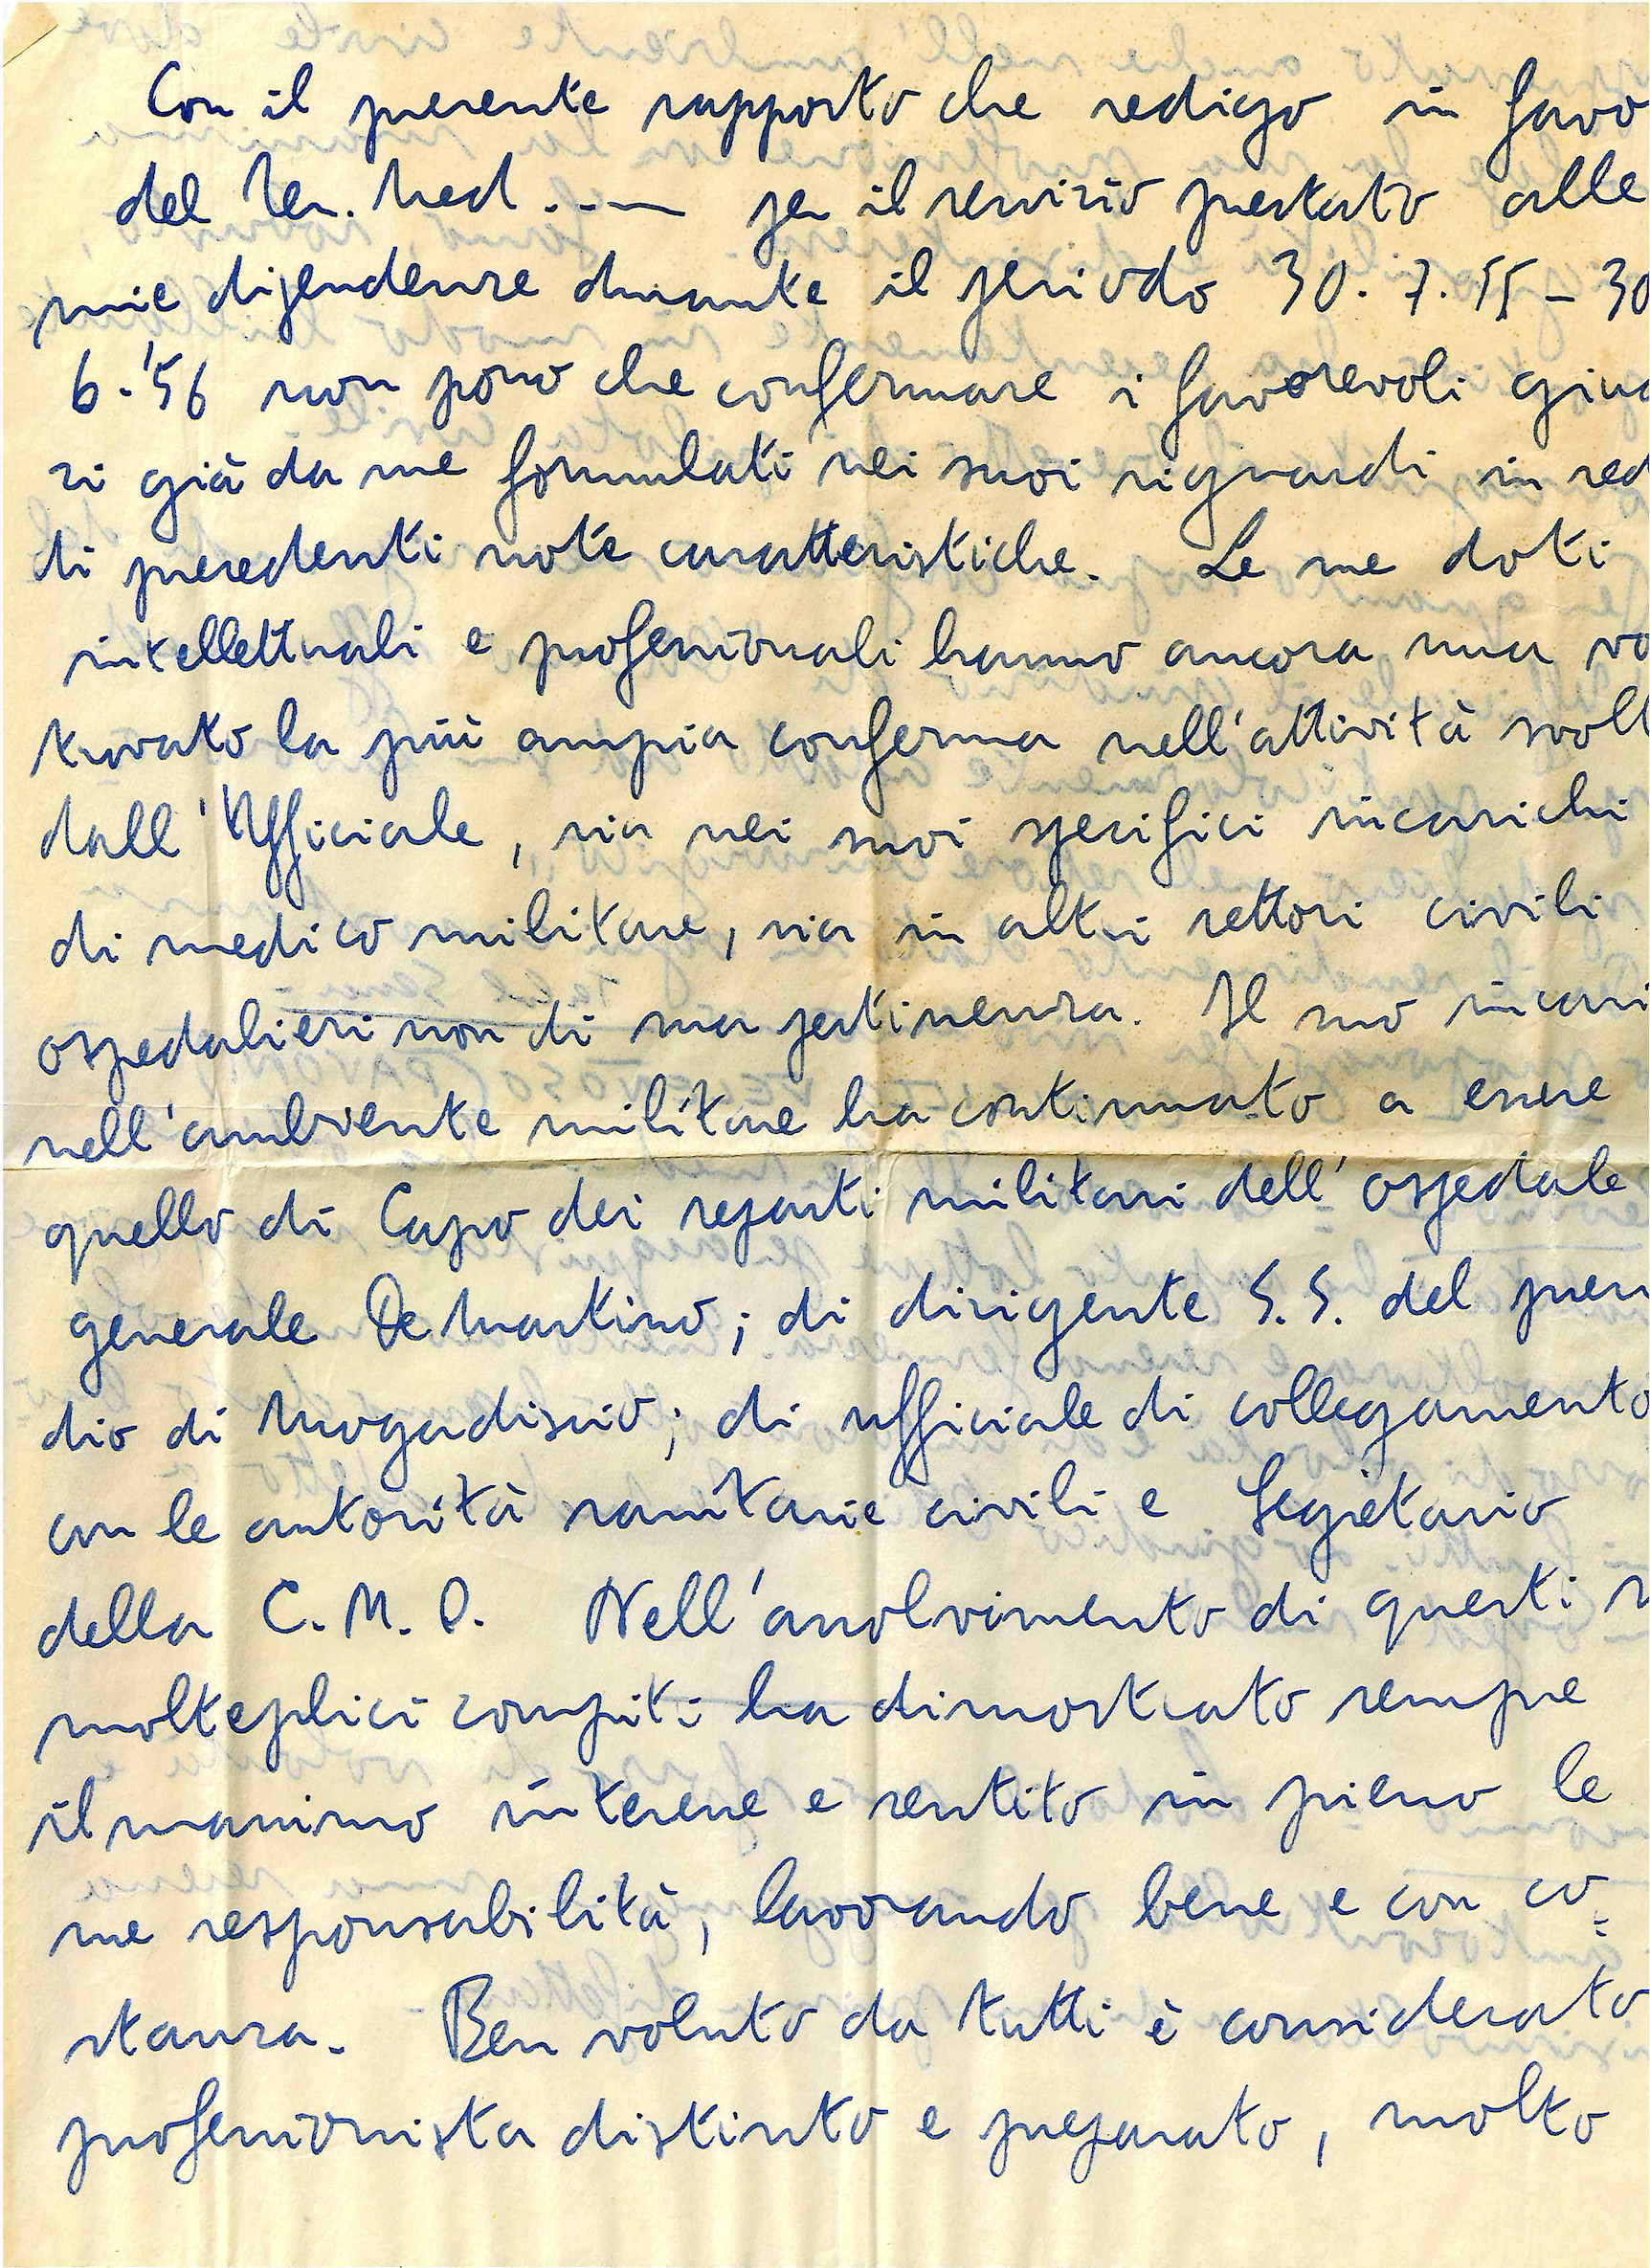 Con il presente rapporto che redigo in favo
del Ten. Med. . - — per il servizio prestato alle
mie dipendenze durante il periodo 30. 7. 55 - 30
6.'56 non posso che confermare i favorevoli giud
zi già da me formulati nei suoi riguardi in sed
di precedenti note caratteristiche. Le sue doti
intellettuali e professionali hanno ancora una vo
trovato la più ampia conferma nell'attività svolt
dall'Ufficiale, sia nei suoi specifici incarichi
di medico militare, sia in altri settori civili
ospedalieri non di sua pertinenza. Il suo incari
nell'ambiente militare ha continuato a essere
quello di Capo dei reparti militari dell'ospedale
generale De Martino; di dirigente S.S. del presi
dio di Mogadiscio; di ufficiale di collegamento
con le autorità sanitarie civili e Segretario
della C. M. O. Nell'assolvimento di questi s
molteplici compiti ha dimostrato sempre
il massimo interesse e sentito in pieno le
sue responsabilità, lavorando bene e con co=
stanza. Ben voluto da tutti è considerato
professionista distinto e preparato, molto